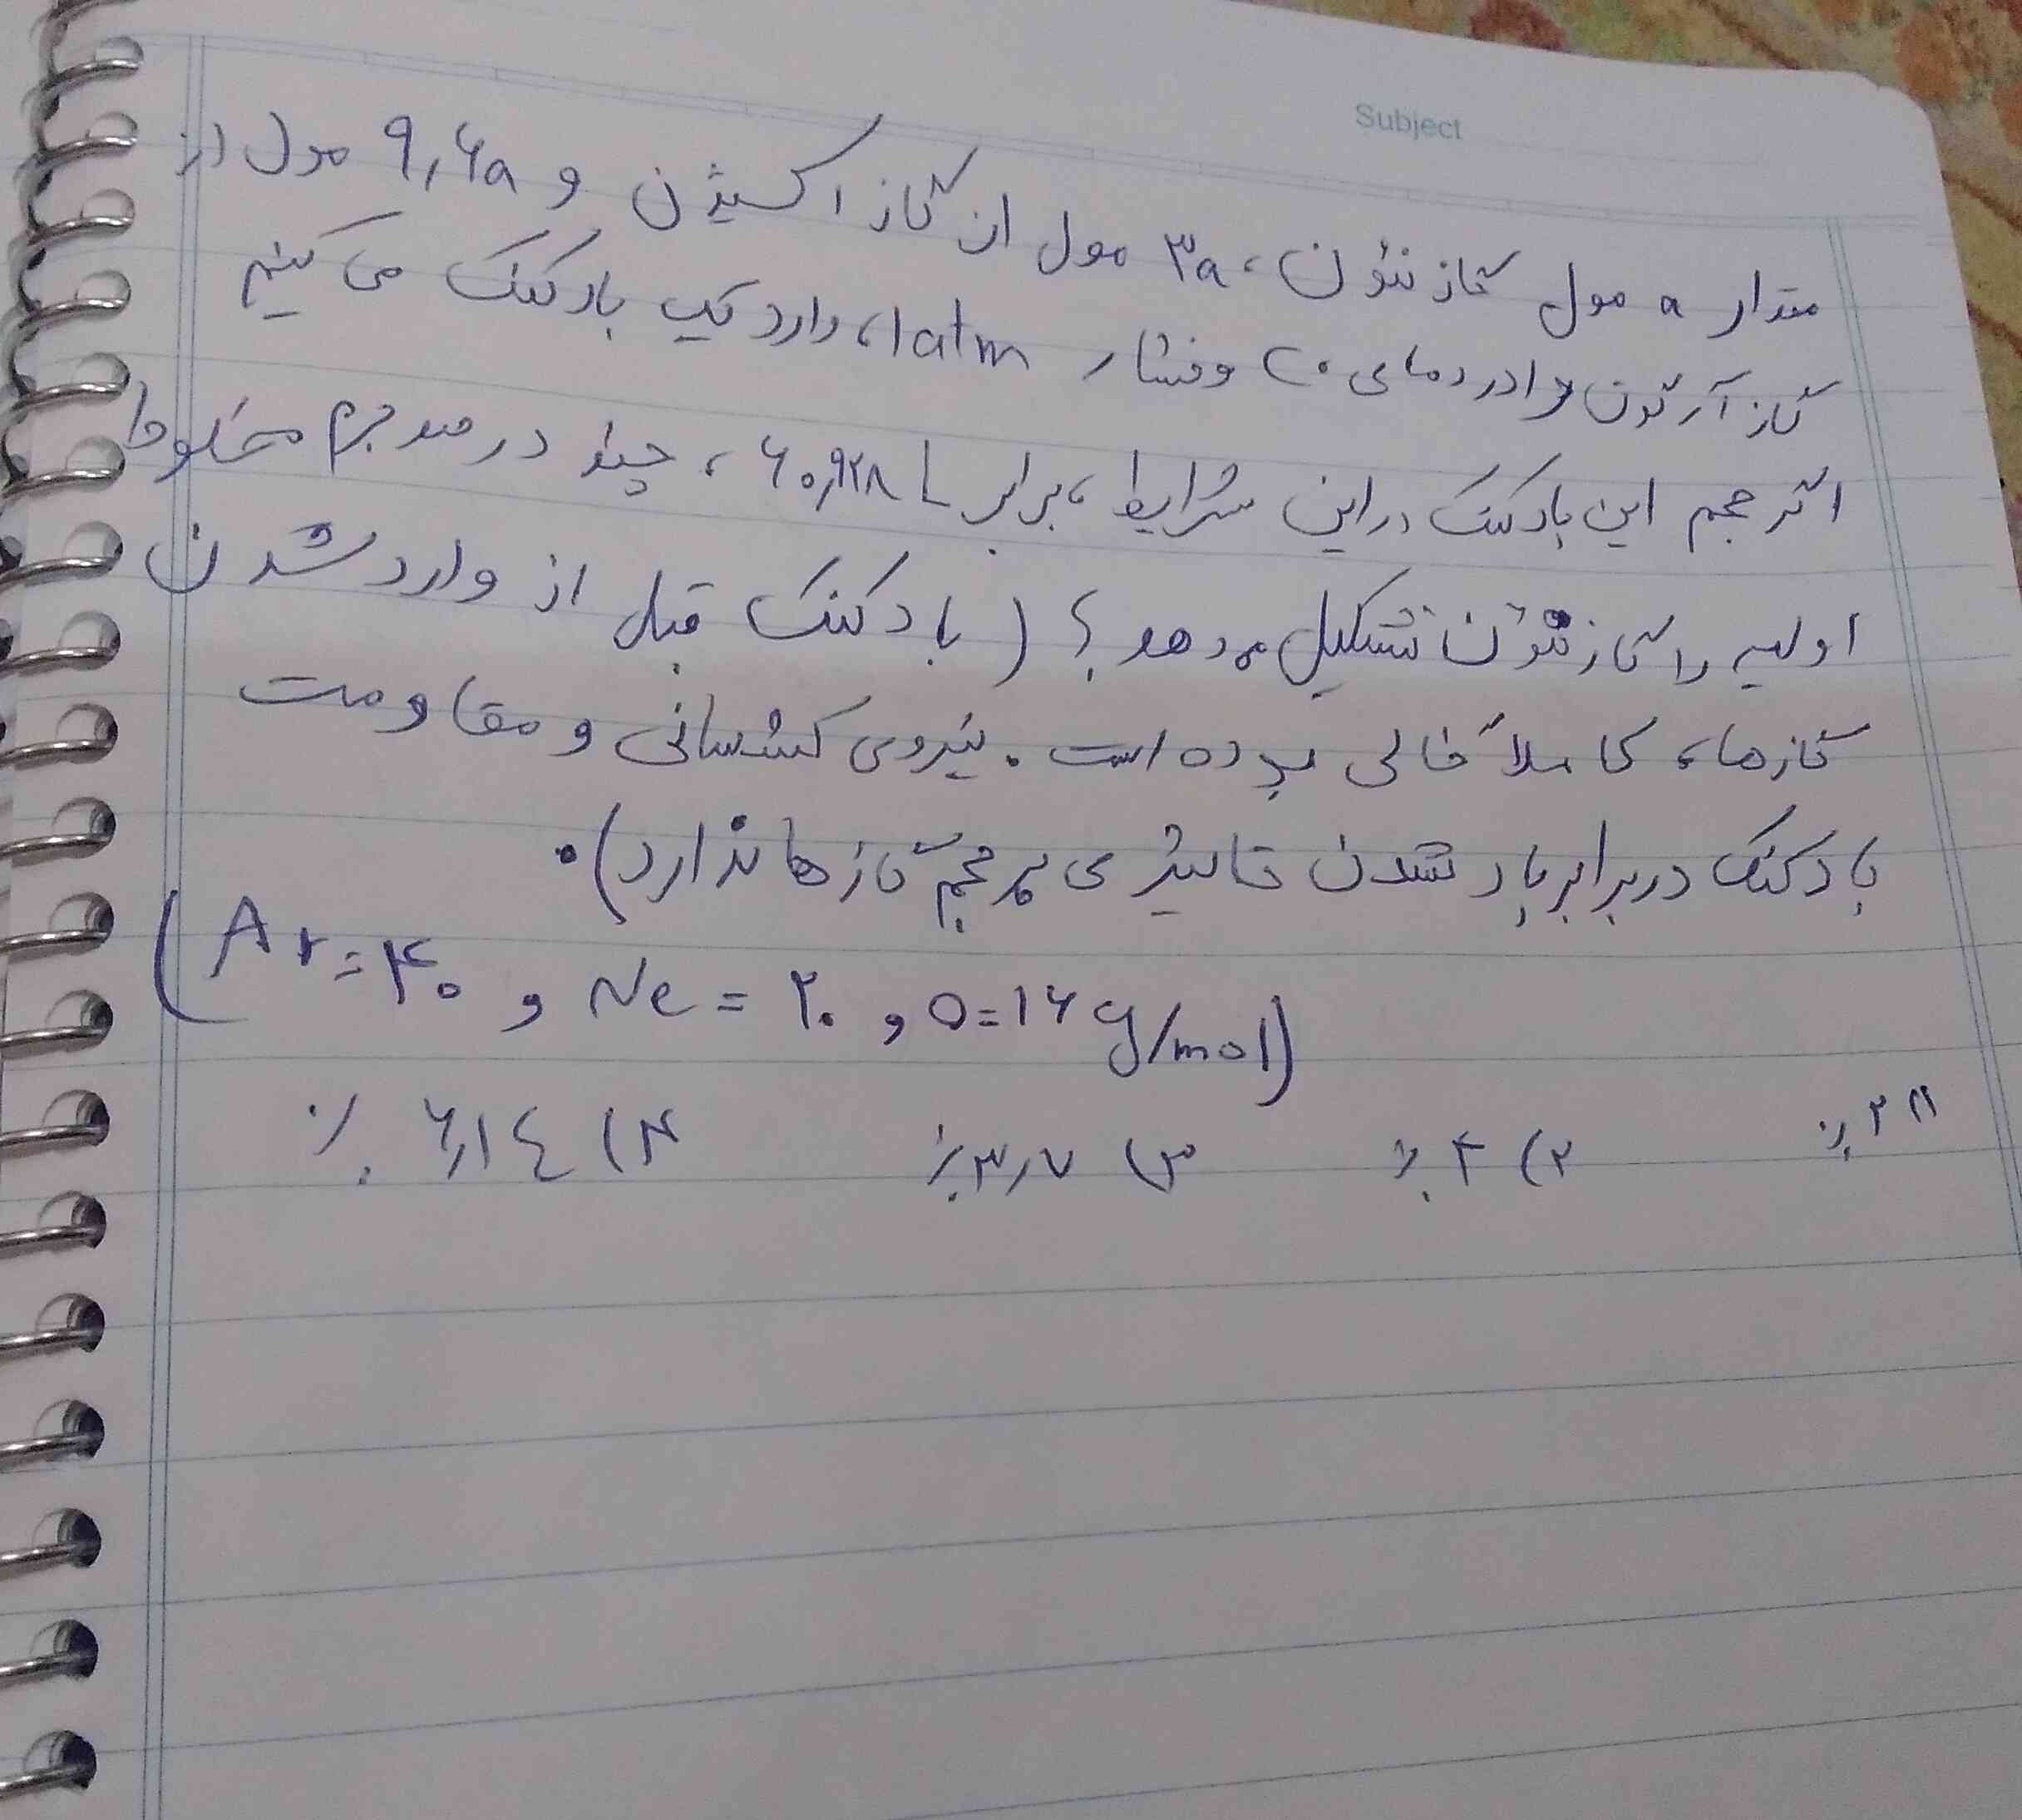 Subject
مقدار a مول گاز نئون، ۳a مول از گاز اکسیژن و ۹٫۶a مول از
گاز آرگون را در دمای ۰C و فشار 1atm، وارد یک بادکنک می کنیم
اگر حجم این بادکنک در این شرایط، برابر ۶۰٫۹۲۸ L، چند درصد جرم مخلوط
اولیه را گاز نئون تشکیل می دهد؟ (بادکنک قبل از وارد شدن
گازها، کاملاً خالی بوده است. نیروی کشسانی و مقاومت
بادکنک در برابر باد شدن تاثیری بر حجم گازها ندارد).
(Ar=۴۰ و Ne=۲۰ و O=۱۶ g/mol)
۱) ۲٪ ۲) ۴٪ ۳) ۳٫۷٪ ۴) ۶٫۱٤٪